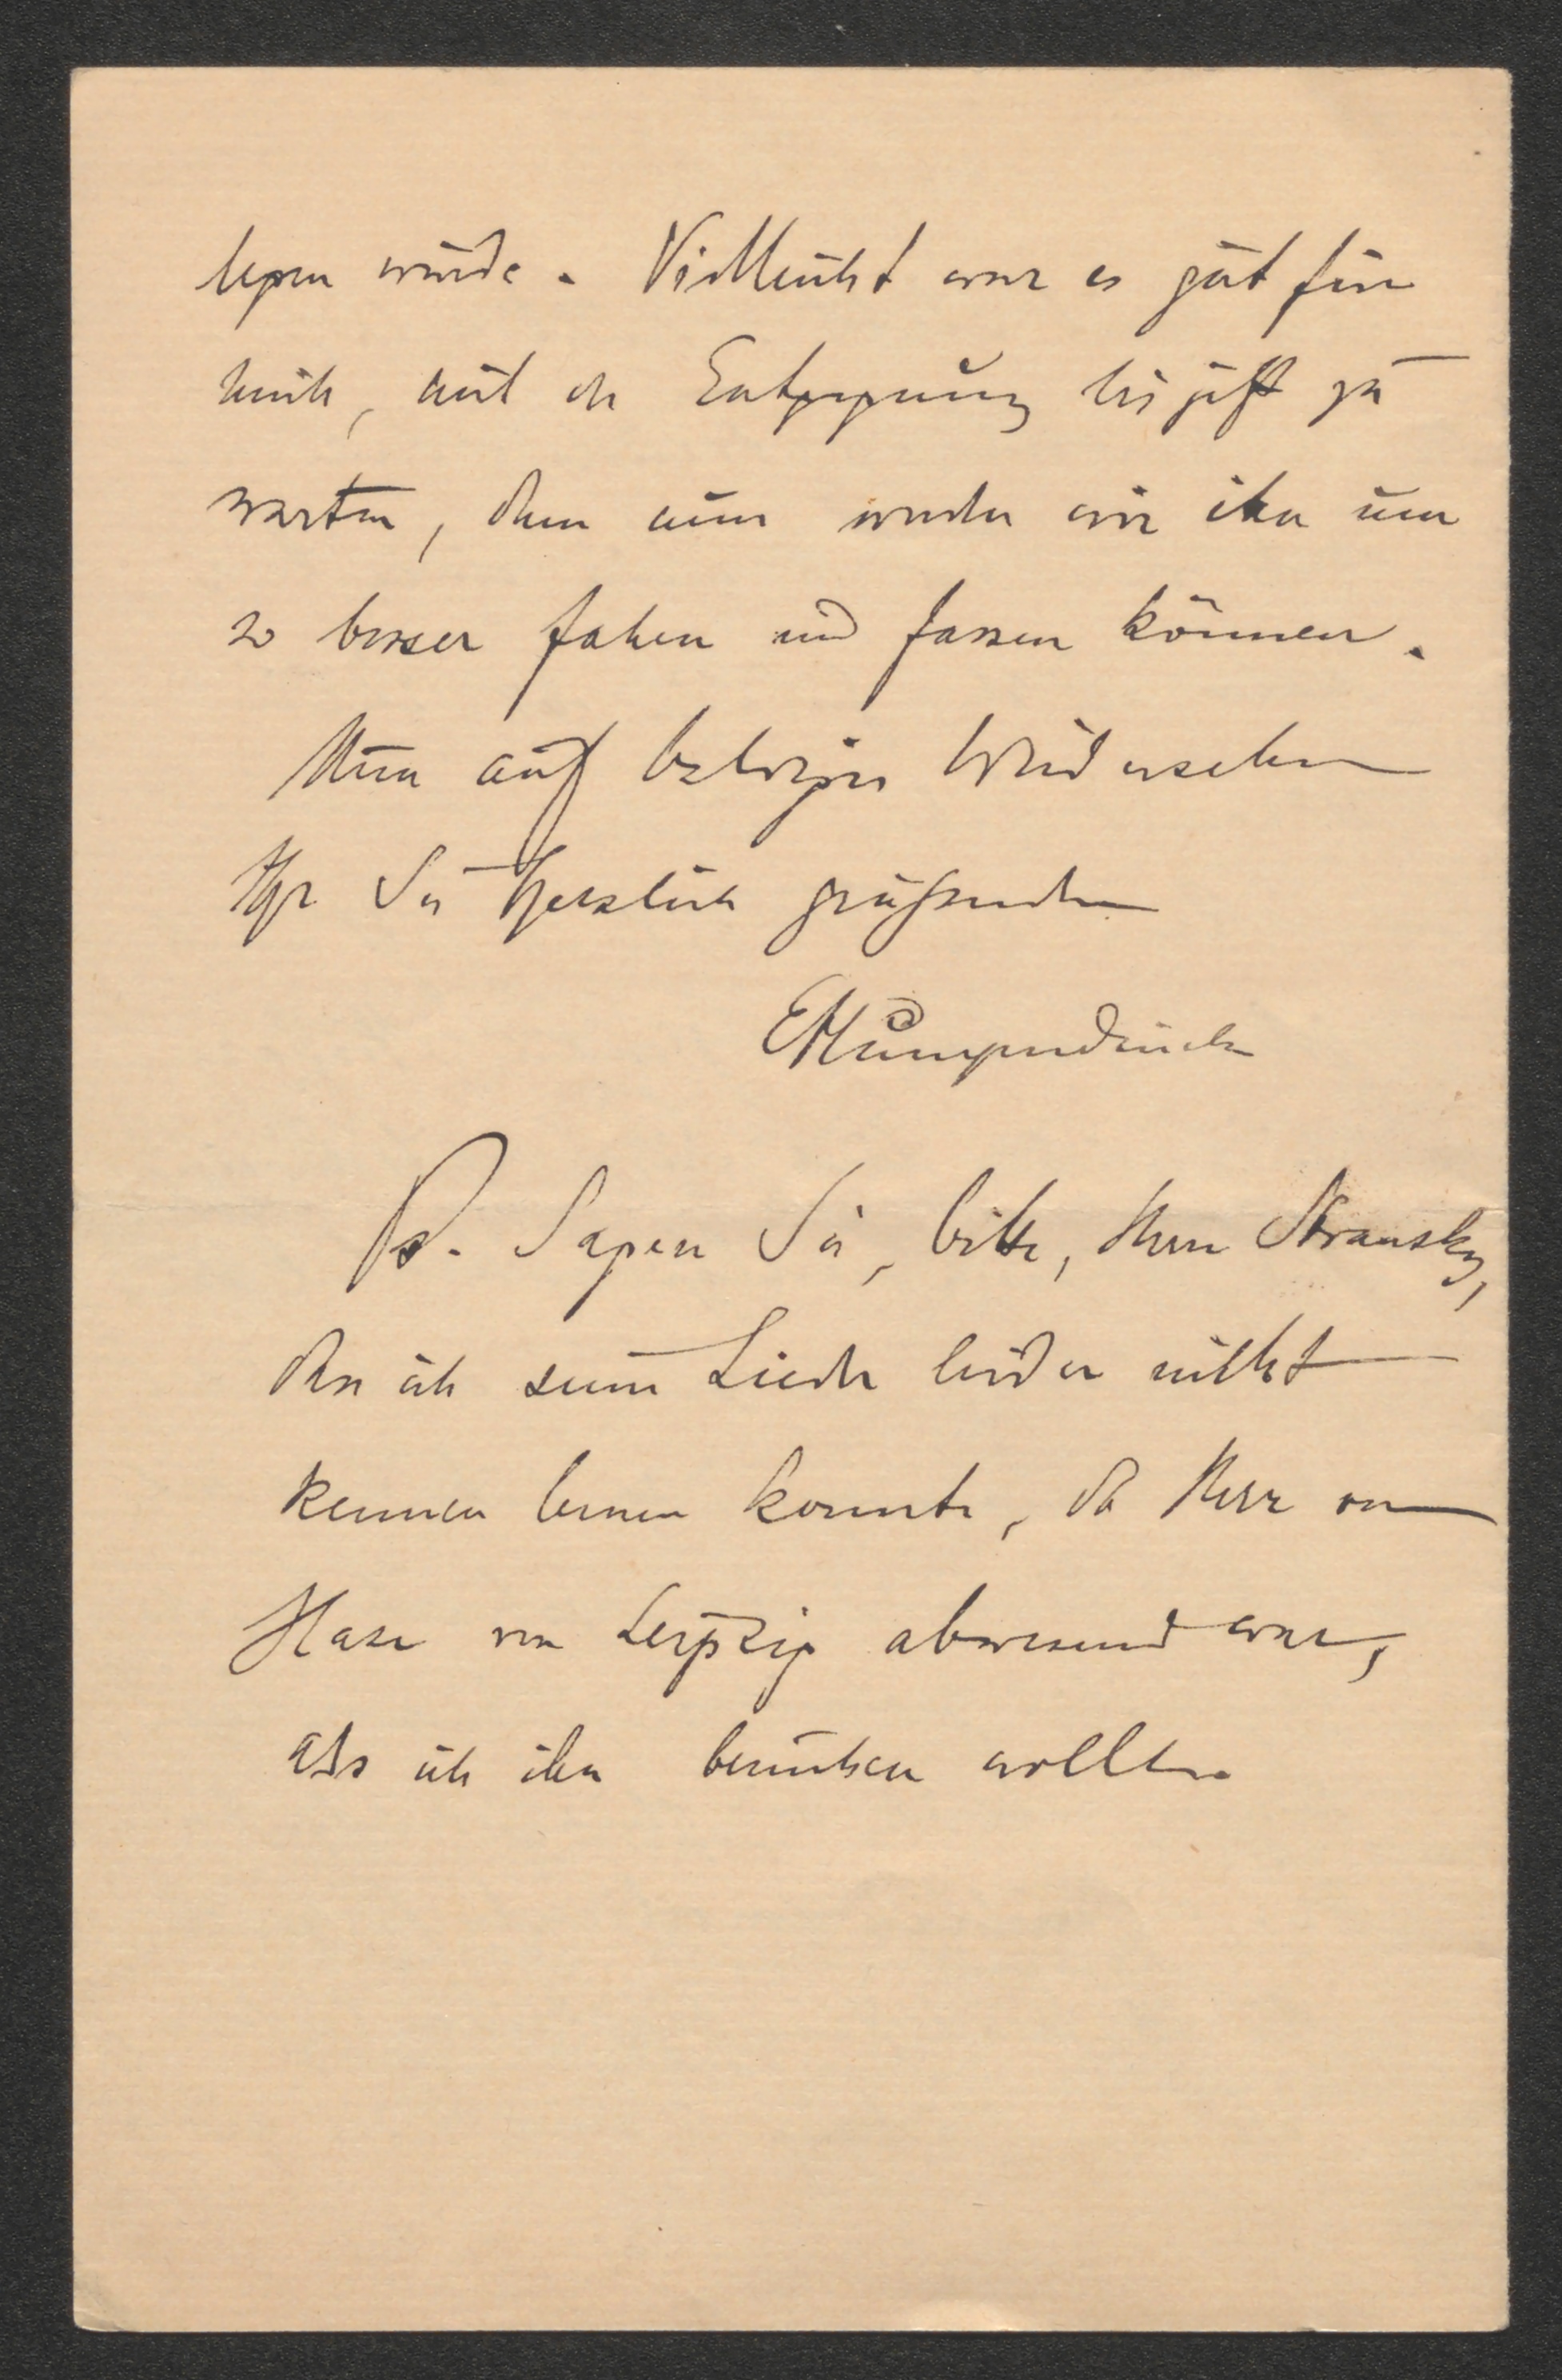 legen würde. Vielleicht war es gut für
mich, mit der Entgegnung bis jetzt zu
warten, denn nun werden wir ihn um
so besser fahen und fassen können.
Nun auf baldiges Wiedersehen
Ihr Sie herzlich grüßender
EHumperdinck
Ps. Sagen Sie, bitte, Herrn Stransky,
dass ich seine Lieder leider nicht
kennen lernen konnte, da Herr von
Hase von Leipzig abwesend war,
als ich ihn besuchen wollte.